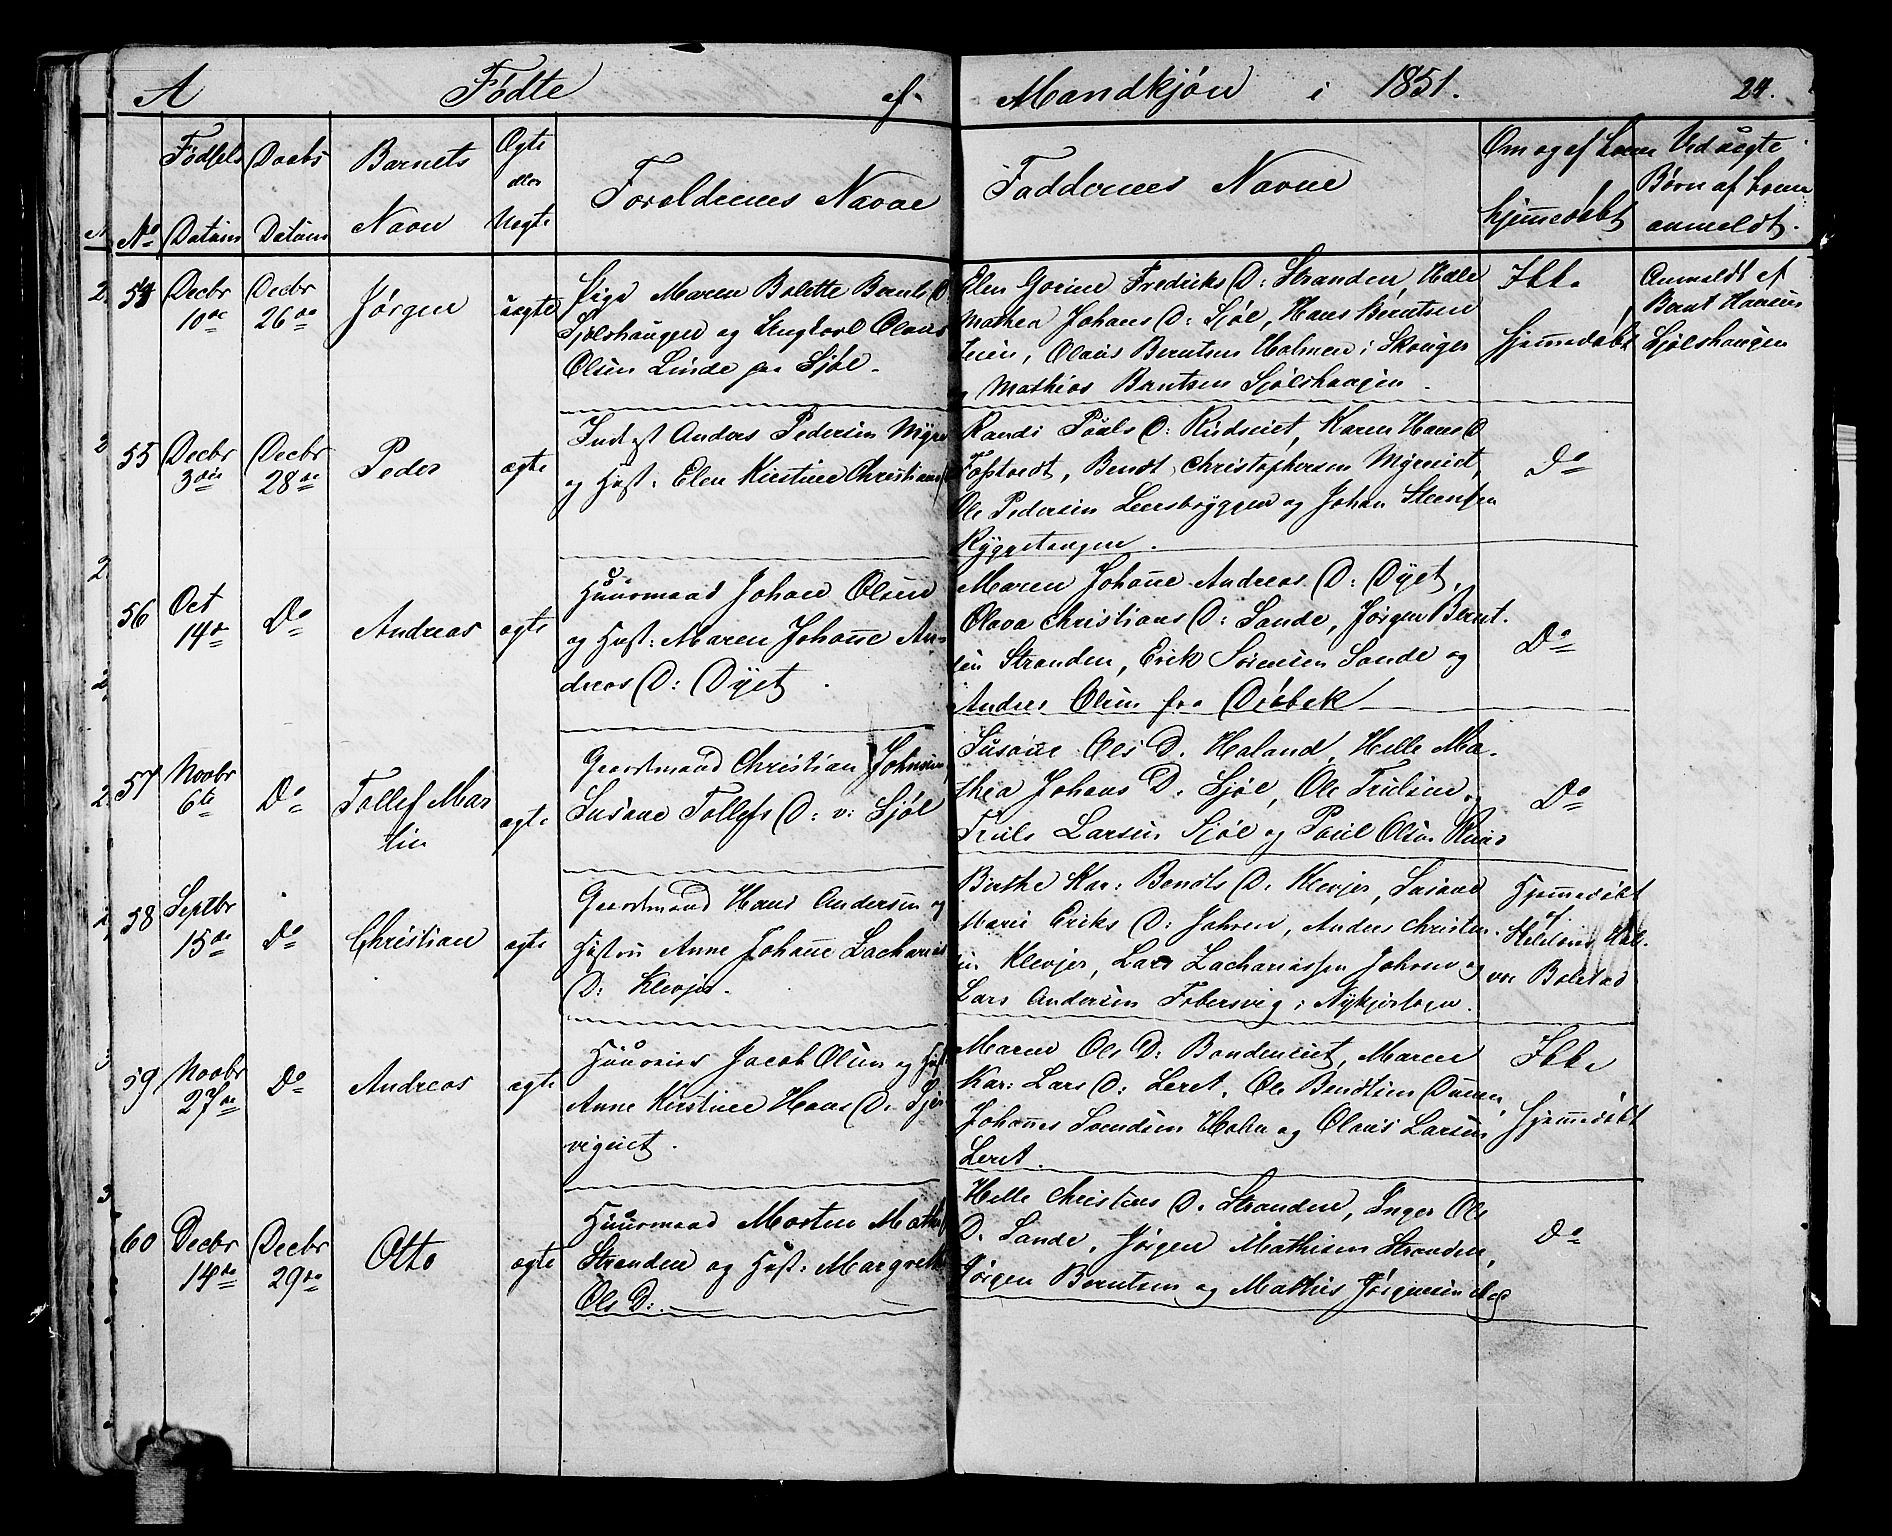 A Fødte af Mandkjøn i 1851. 24.
No
Fødsels Datum
Daabs Datum
Barnets Navn
Ægte eller Uægte
Foreldrenes Navne
Faddernes Navne
Om og af hvem hjemmedøbt
Ved uægte Børn af hvem anmeldt.
54
Decbr 10de
Decbr 26de
Jørgen
uægte
Pige Maren Bolette Bernts D
Sjølshaugen og Ungkarl Olaus
Olsen Linde paa Sjøl.
Elen Gorine Fredriks D: Stranden, Helle
Mathea Johans D: Sjøl, Hans Berntsen
Olaus Berntsen Holmen i Skouger
og Mathias Berntsen Sjølshaugen.
Ikke
Hjemmedøbt
Anmeldt af
Bernt Hansen
Sjølshaugen
55
Decbr 3die
Decbr 28de
Peder
ægte
Inds Anders Pedersen
og Hust: Elen Kirstine Christians
Randi Pouls D: Rudseiet, Karen Hans D
Toftvedt, Bendt Christophersen Myreneiet,
Ole Pedersen Leersbryggen og Johan Steensen
Ryggetangen.
Do
56
Oct 14de
Do
Andreas
ægte
Huusmand Johan Olsen
og Hust: Maren Johanne An-
dreas D: Dyet.
Maren Johanne Andreas D: Dyet,
Olava Christians D: Sande, Jørgen Bernt-
sen Stranden, Erik Sørensen Sande og
Andres Olsen fra Drøbak
Do
57
Novbr 6te
Do
Tollef Mar
tin
ægte
Gaardmand Christian Johnsen,
Susanne Tollefs D: v: Sjøl
Susanne Ols D. Haland, Helle Ma-
thea Johans D. Sjøl, Ole Trulsen,
Truls Larsen Sjøl og Poul Olsen
Do
58
Septbr 15de
Do
Christian
ægte
Gaardmand Hans Andersen og
Hustru Anne Johanne Zacharias
D: Klevjer.
Birthe Kar: Bendts D. Klevjer, Susanne
Marie Eriks D: Jahren, Anders Christen-
sen Klevjer, Lars Zachariassen Jahren og
Lars Andersen Tobersvig i Nykjerlogen.
Hjemmedøbt
af
vor Bolstad
59
Novbr 27de
Do
Andreas
ægte
Jacob Olsen og Hust
Anne Kirstine Hans D:
vigeiet.
Maren Ols D: Bondeneiet, Maren
Kar: Lars D: Leret, Ole Bendtsen
Johannes Svendsen Holm og Olaus Larsen
Leret.
Ikke
Hjemmedøbt
60
Decbr 14de
Decbr 29de
Otto
ægte
Huusmand Morten Maths
Stranden og Hust: Margrethe
Ols D:
Helle Christians D. Stranden, Inger Ols
D. Sande, Jørgen Mathisen Stranden,
Jørgen Berntsen og Mathis Jørgensen
Do